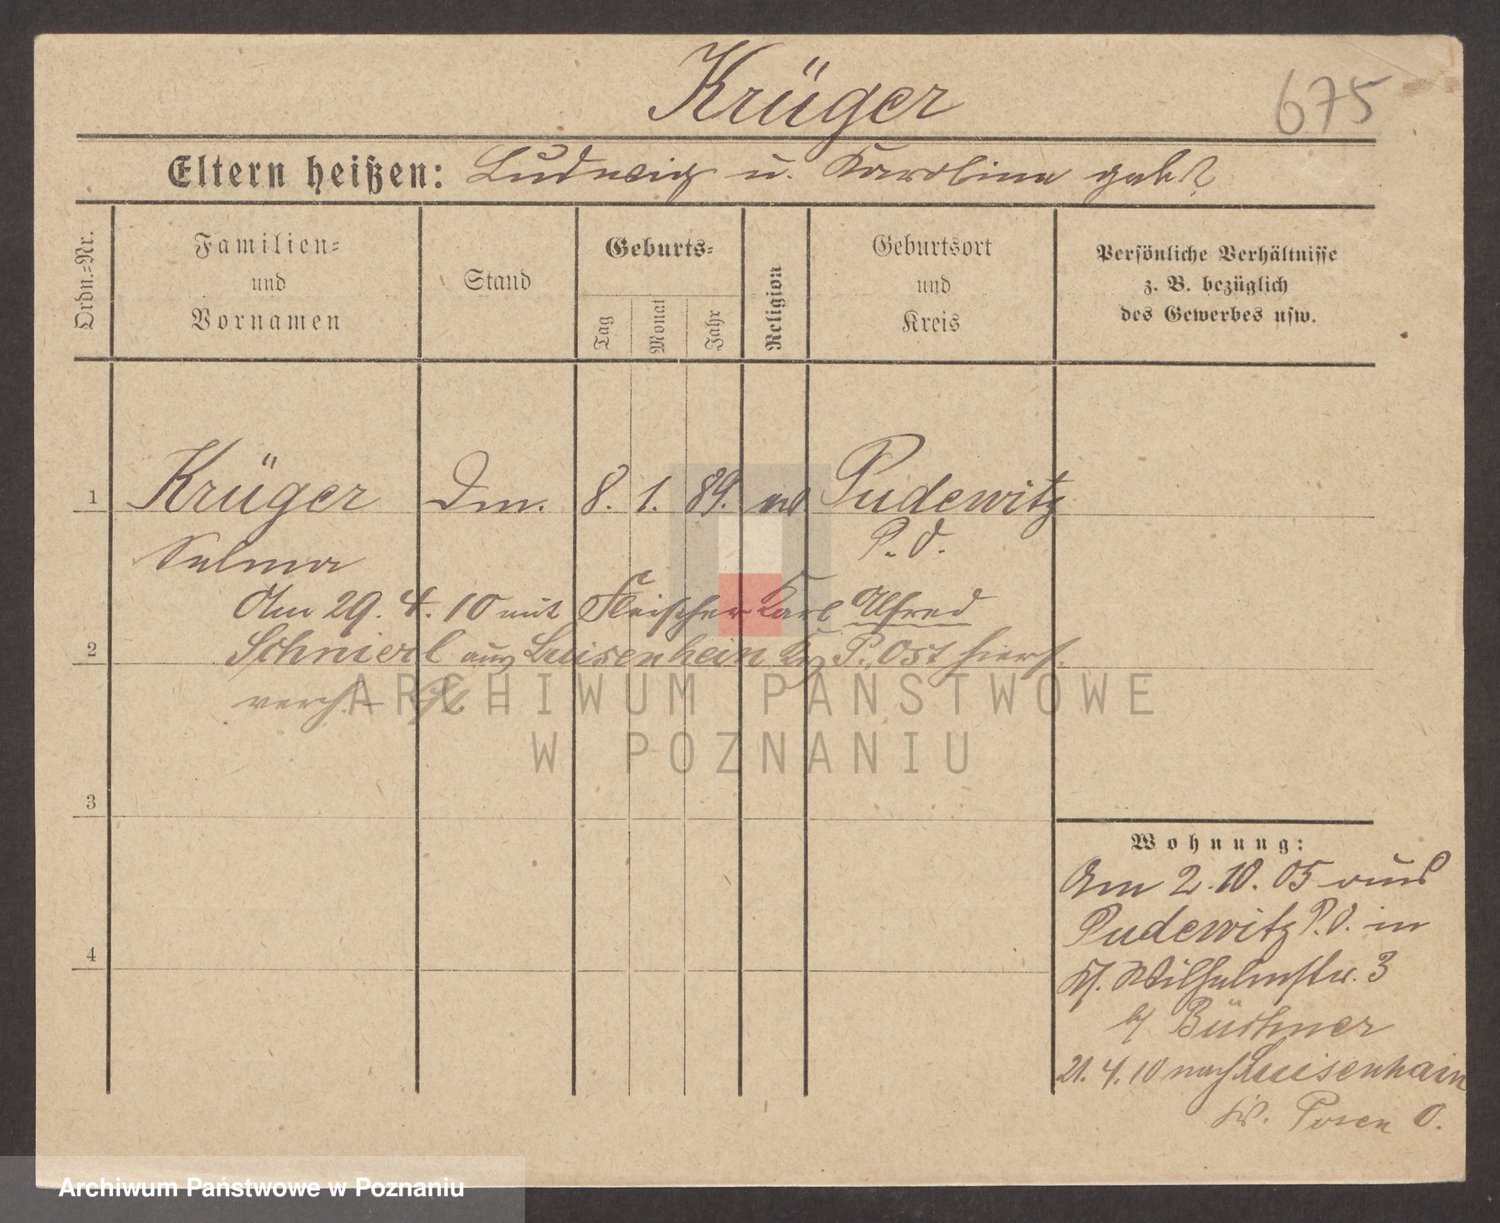 Krüger
675
Eltern heißen: Ludwig u. Karoline geb ?
Ordn.=Nr.
Familien=
und
Vornamen
Stand
Geburts=
Tag
Monat
Jahr
Religion
Geburtsort
und
Kreis
Persönliche Verhältnisse
z. B. bezüglich
des Gewerbes usw.
1 Krüger 8. 1. 89. Pudewitz
Selma P. O.
Am 29. 4. 10 mit Fleischer Karl Alfred
2
Schnierl aus Luisenhein Krs P. Ost hiers.
verh.
ARCHIWUM PAŃSTWOWE
W POZNANIU
3
4
Wohnung:
Am 2. 10. 05 aus
Pudewitz P. O. in
Kl. Wilhelmstr. 3
b/ Büttner
21. 4. 10 nach Luisenhain
Kr. Posen O.
Archiwum Państwowe w Poznaniu